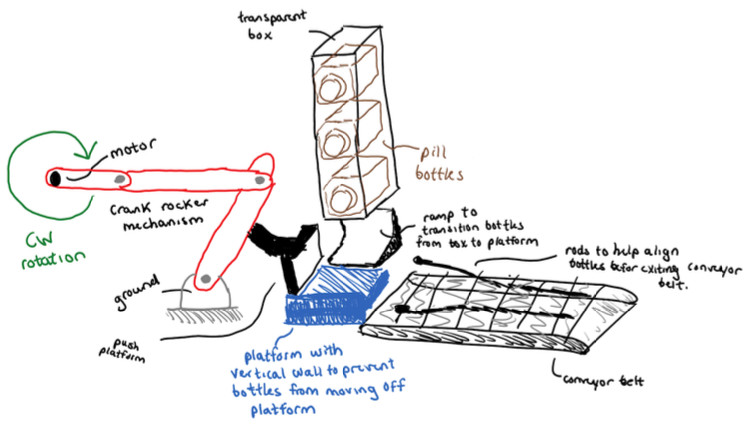 transparent
box
motor
pill
bottles
crank rocker
mechanism
CW
rotation
ramp to
transition bottles
from box to platform
rods to help align
bottles befor exiting conveyor
belt.
ground
push
platform
platform with
vertical wall to prevent
bottles from moving off
platform
conveyor belt